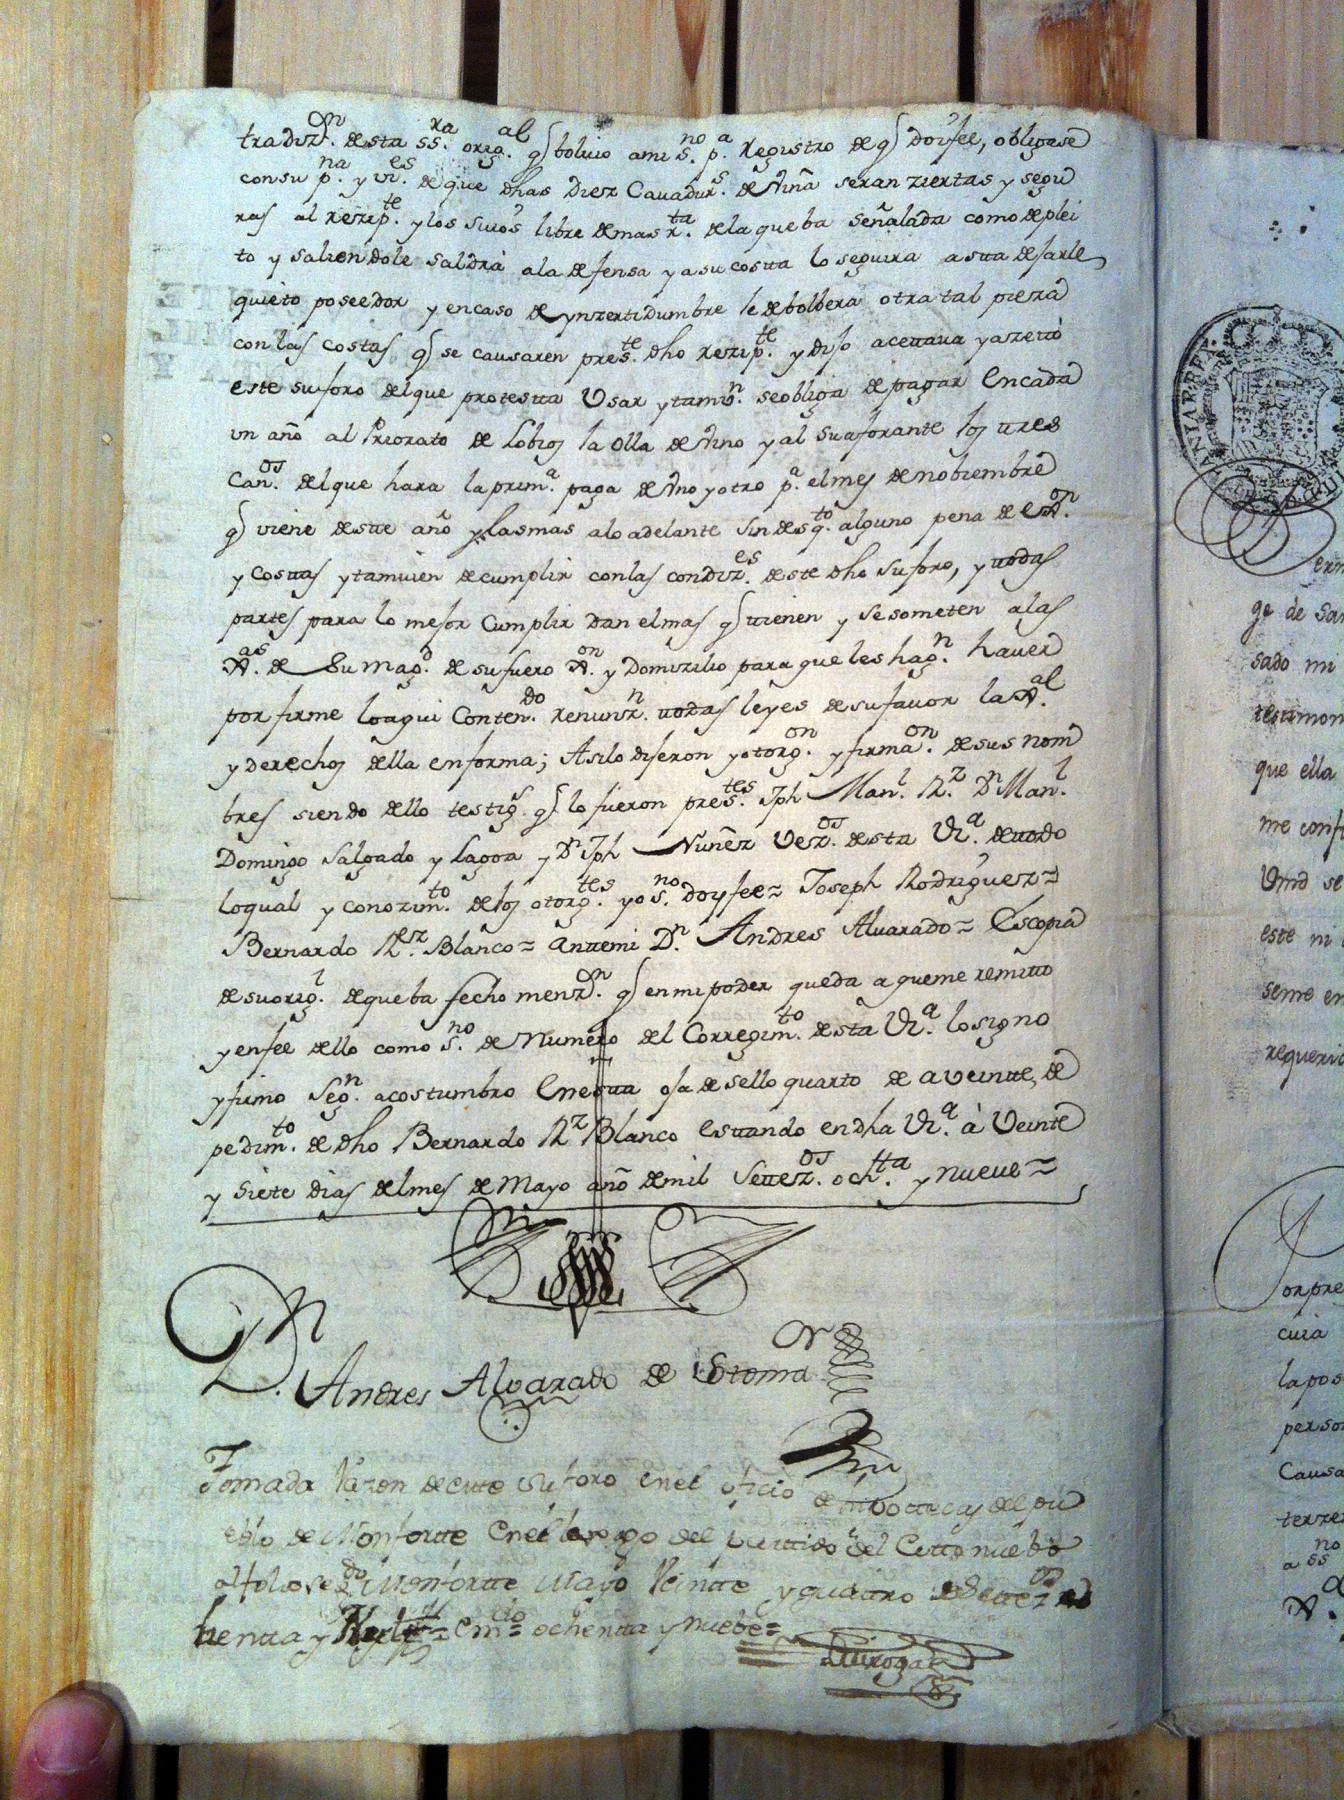 tradiz.ⁿ desta ss.ʳᵃ orig.ᵃˡ q̃ bolvio ami s.ⁿᵒ p.ᵃ Registro de q̃ doyfee, obligase
consu p.ⁿᵃ y vi.ᵉˢ de que dhas Diez Cavadur.ˢ de viña seran ziertas y segu
ras al rezip.ᵗᵉ y los suios libre demas r.ᵗᵃ dela que ba señalada como deplei
to y saliendole saldrà ala defensa y asu costta lo seguira astta desarle
quieto poseedor y encaso de ynzertidumbre le debolbera otra tal pieza
con las costas q̃ se causaren pres.ᵗᵉ dho rezip.ᵗᵉ y diso acettava y azettò
este suforo del que protestta Usar y tamv.ⁿ seobliga de pagar Encada
un año al Priorato de Lobios la olla de vino y al suaforante los tres
Can.ᵒˢ del que hara la prim.ᵃ paga de vno y otro p.ᵃ el mes de nobiembre
q̃ viene destte año y las mas alo adelante sin desq.ᵗᵒ alguno pena de ex.ᵒⁿ
y costtas y tamvien de cumplir con las condiz.ᵉˢ de este dho suforo, y ttodas
partes para lo mesor Cumplir Dan elmas q̃ ttienen y se someten alas
X.ᵃˢ de Su mag.ᵈ de su fuero X.ᵒⁿ y Domizilio para que les hag.ⁿ haver
por firme loaqui Conten.ᵈᵒ renunz.ⁿ ttodas leyes de su favor la X.ᵃˡ
y derechos della enforma; Asilo diseron y otorg.ᵒⁿ y firma.ᵒⁿ de sus nom
bres siendo dello testig.ˢ q̃ lo fueron pres.ᵗᵉˢ Jph Man.ˡ R.ᶻ D.ⁿ Man.ˡ
Domingo Salgado y Lagoa y D.ⁿ Jph Nuñez Vez.ᵒˢ desta Vi.ᵃ de ttodo
loqual y conozim.ᵗᵒ de los otorg.ᵗᵉˢ yo s.ⁿᵒ doyfee = Joseph Rodriguez =
Bernardo R.ᵉᶻ Blanco = anttemi D.ⁿ Andres Alvarado = Es copia
de suorig.ˡ de que ba fecho menz.ⁿ q̃ en mi poder queda a queme remitto
y enfee dello como s.ⁿᵒ de Numéro del Corregim.ᵗᵒ desta Vi.ᵃ lo signo
y firmo Seg.ⁿ acostumbro En estta osa de sello quarto de aveintte, de
pedim.ᵗᵒ de dho Bernardo R.ᶻ Blanco Esttando en dha Vi.ᵃ à Veinte
y siete dias del mes de Mayo año de mil Settez.ᵒˢ och.ᵗᵃ y nueve =
D.ⁿ Andres Alvarado de
Tomada Razon de estte suforo en el oficio de Hipottecas del pu
eblo de Monfortte En el del parttido del Cotto nuebo
al folio Monfortte Mayo Veintte y quattro de Settez.ᵒˢ
hentta y = Em.ᵈᵒ = ochentta y nuebe =
Quiroga
erm
ge de San
sado mi
testimon
que ella
me confi
Vmd se
este ni
seme en
requeri
orpre
cuia
la pos
perso
Causa
terze
a ss.ⁿᵒ